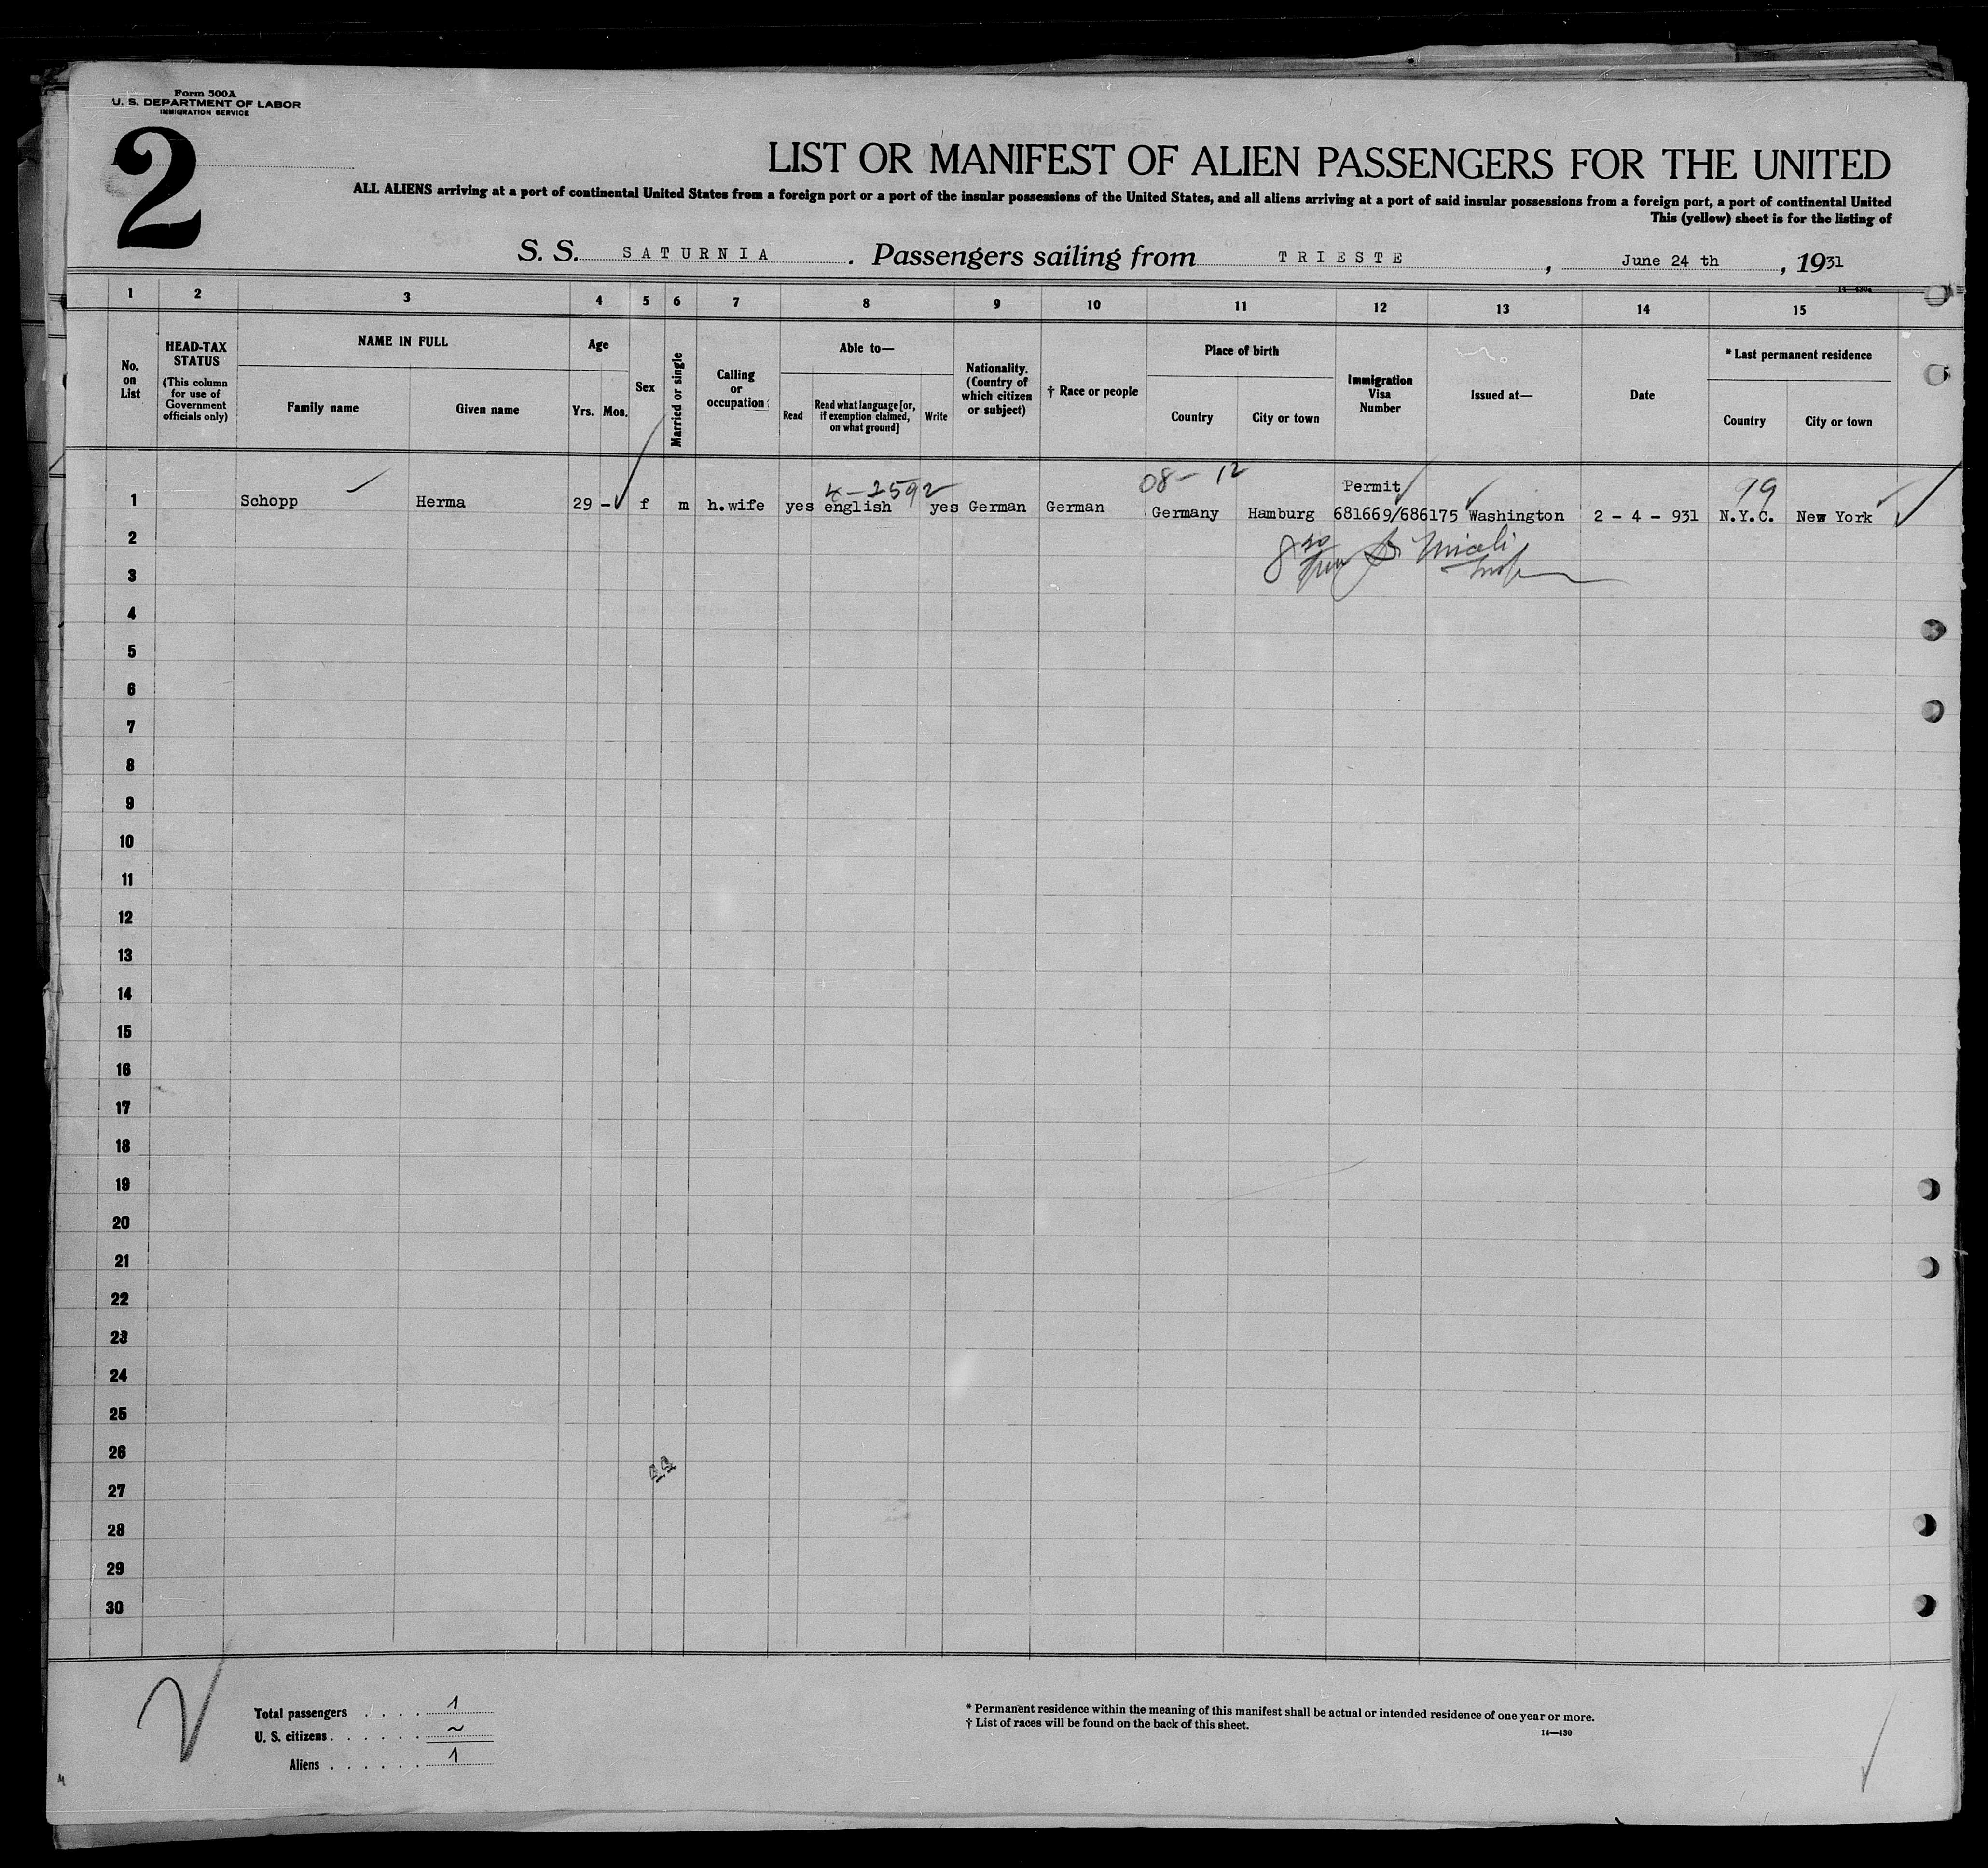 Form 500A
U. S. DEPARTMENT OF LABOR
IMMIGRATION SERVICE
2
LIST OR MANIFEST OF ALIEN PASSENGERS FOR THE UNITED
ALL ALIENS arriving at a port of continental United States from a foreign port or a port of the insular possessions of the United States, and all aliens arriving at a port of said insular possessions from a foreign port, a port of continental United
This (yellow) sheet is for the listing of
S. S. SATURNIA. Passengers sailing from TRIESTE, June 24 th, 1931
1 2 3 4 5 6 7 8 9 10 11 12 13 14 15
No. on List
HEAD-TAX STATUS (This column for use of Government officials only)
NAME IN FULL
Family name Given name
Age
Yrs. Mos.
Sex
Married or single
Calling or occupation
Able to—
Read Read what language [or, if exemption claimed, on what ground] Write
Nationality. (Country of which citizen or subject)
† Race or people
Place of birth
Country City or town
Immigration Visa Number
Issued at—
Date
* Last permanent residence
Country City or town
08- 12
Permit
99
1 Schopp Herma 29 - f m h.wife yes english yes German German Germany Hamburg 681669/686175 Washington 2 - 4 - 931 N.Y.C. New York
2
3
4
5
6
7
8
9
10
11
12
13
14
15
16
17
18
19
20
21
22
23
24
25
26
27
28
29
30
Total passengers . . . . 1
U. S. citizens . . . . . . ~
Aliens . . . . . . 1
* Permanent residence within the meaning of this manifest shall be actual or intended residence of one year or more.
† List of races will be found on the back of this sheet.
14—430